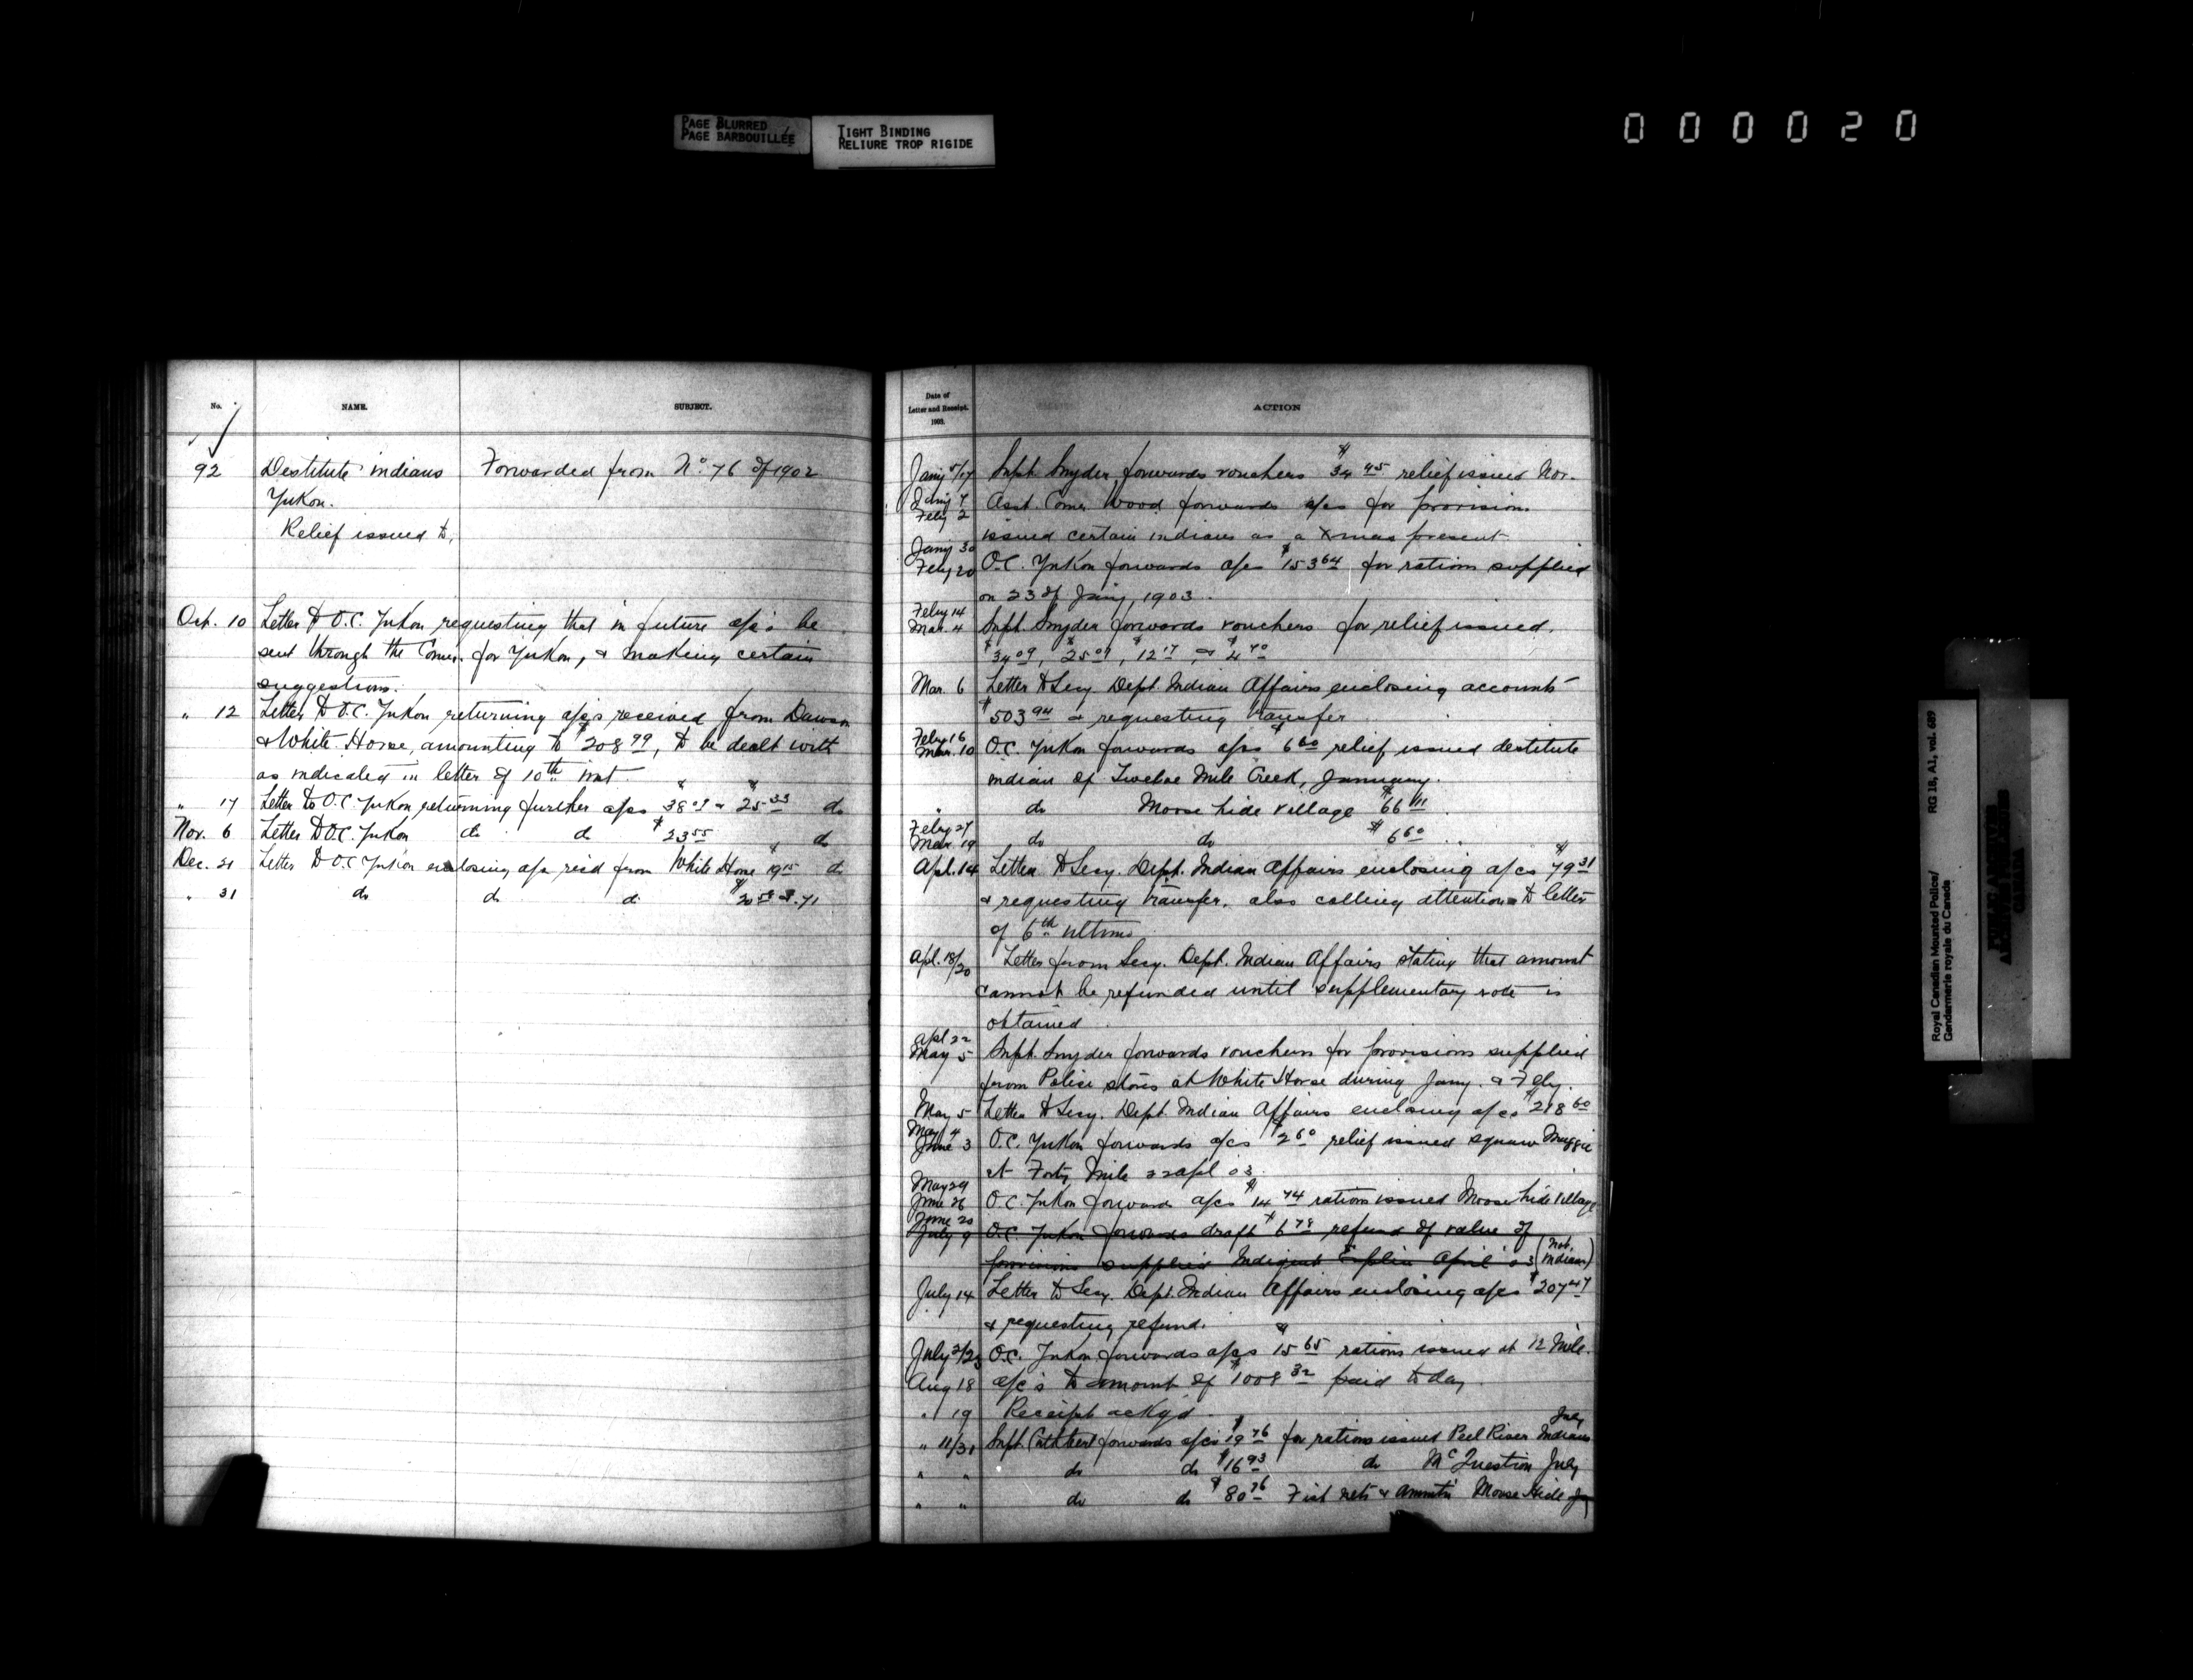 PAGE BLURRED
PAGE BARBOUILLÉE
TIGHT BINDING
RELIURE TROP RIGIDE
000020
No.
NAME.
SUBJECT.
92 Destitute indians Forwarded from No. 76 of 1902
Yukon.
Relief issued to,
Oct. 10 Letter to O.C. Yukon requesting that in future a/cs be
sent through the Comr. for Yukon, & making certain
suggestions.
" 12 Letter to O.C. Yukon returning a/cs received from Dawson
& White Horse, amounting to $208 99, to be dealt with
as indicated in letter of 10th inst.
" 17 Letter to O.C. Yukon returning further a/cs $38 09 & $25 33 do
Nov. 6 Letter to O.C. Yukon do do $23 55 do
Dec. 21 Letter to O.C. Yukon enclosing a/cs recd from White Horse $19 15 do
" 31 do do do
Date of
Letter and Receipt.
1903.
ACTION
Jany 5/17 Supt. Snyder forwards vouchers $34 45 relief issued Nov.
Jany 7
Feby 2 Asst. Comr Wood forwards a/cs for provisions
issued certain indians as a Xmas present
Jany 30
Feby 20 O.C. Yukon forwards a/cs $153 64 for rations supplied
on 23 of Jany, 1903.
Feby 14
Mar. 4 Supt. Snyder forwards vouchers for relief issued.
$34 09, $25 09, $12 17, & $4 70
Mar. 6 Letter to Secy Dept. Indian Affairs enclosing accounts
$503 94 & requesting transfer
Feby 16
Mar. 10 O.C. Yukon forwards a/cs $6 60 relief issued destitute
indian of Twelve Mile Creek, January.
" do Moose hide village $66 11
Feby 27
Mar. 19 do do $6 60 "
Apl. 14 Letter to Secy. Dept. Indian Affairs enclosing a/cs $79 31
& requesting transfer. also calling attention to letter
of 6th ultimo
Apl. 18/20 Letter from Secy. Dept. Indian Affairs stating that amount
cannot be refunded until supplementary vote is
obtained
Apl 22
May 5 Supt. Snyder forwards vouchers for provisions supplied
from Police stores at White Horse during Jany. & Feby.
May 5 Letter to Secy. Dept. Indian Affairs enclosing a/cs $218 60
May 4
June 3 O.C. Yukon forwards a/cs $2 60 relief issued squaw Maggie
at Forty Mile 22 Apl 03.
May 29
June 26 O.C. Yukon forwards a/cs $14 74 rations issued Moose hide village
June 20
July 9 O.C. Yukon forwards draft $6 78 refund of value of
provisions supplied Indigent April 03 (not indian)
July 14 Letter to Secy. Dept. Indian Affairs enclosing a/cs $207 47
& requesting refund.
July 2/23 O.C. Yukon forwards a/cs $15 65 rations issued at 12 Mile.
Aug 18 a/c's to amount of $1009 32 paid today
" 19 Receipt ackgd.
" 11/31 Supt. Cuthbert forwards a/cs $19 76 for rations issued Peel River Indians July
" " do do $16 93 do McQuestion July
" " do do $80 76 Fish nets & Ammtn Moose Hide
Royal Canadian Mounted Police/
Gendarmerie royale du Canada
RG 18, A1, vol. 689
PUBLIC ARCHIVES
ARCHIVES PUBLIQUES
CANADA